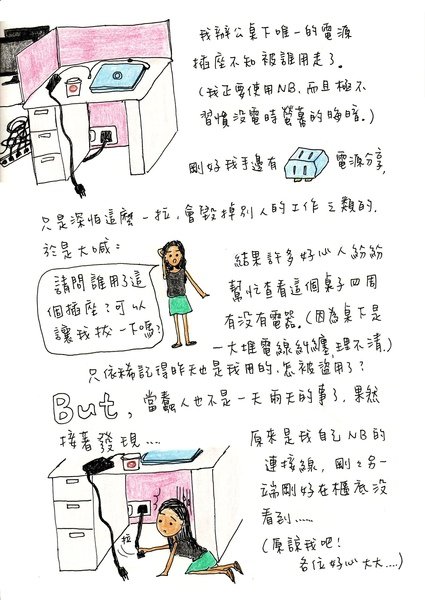 我辦公桌下唯一的電源
插座不知被誰用走了。
(我正要使用NB.而且極不
習慣沒電時螢幕的晦暗。)
剛好我手邊有 電源分享,
只是深怕這麼一拉,會毀掉別人的工作之類的.
於是大喊:
請問誰用了這
個插座?可以
讓我拔一下嗎?
結果許多好心人紛紛
幫忙查看這個桌子四周
有沒有電器。(因為桌下是
一大堆電線糾纏,理不清.)
只依稀記得昨天也是我用的,怎被盜用了?
But, 當蠢人也不是一天兩天的事了,果然
接著發現....
原來是我自己NB的
連接線,剛剛另一
端剛好在櫃底沒
看到.....
(原諒我吧!
各位好心大大....)
拉